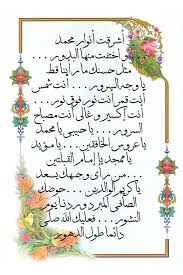 أشرقت أنوار محمد
واختفت منها البدور ...
مثل حسنك ما رأينا قط
يا وجه السرور ... أنت شمس
أنت قمر أنت نور فوق نور ...
أنت إكسير وغالى أنت مصباح
السرور ... يا حبيبى يا محمد
يا عروس الخافقين ... يا مؤيد
يا ممجد يا إمام القبلتين
... من رأى وجهك يسعد
يا كريم الوالدين ... حوضك
الصافى المبرد وردنا يوم
النشور ... فعليك الله صلى
دائما طول الدهور